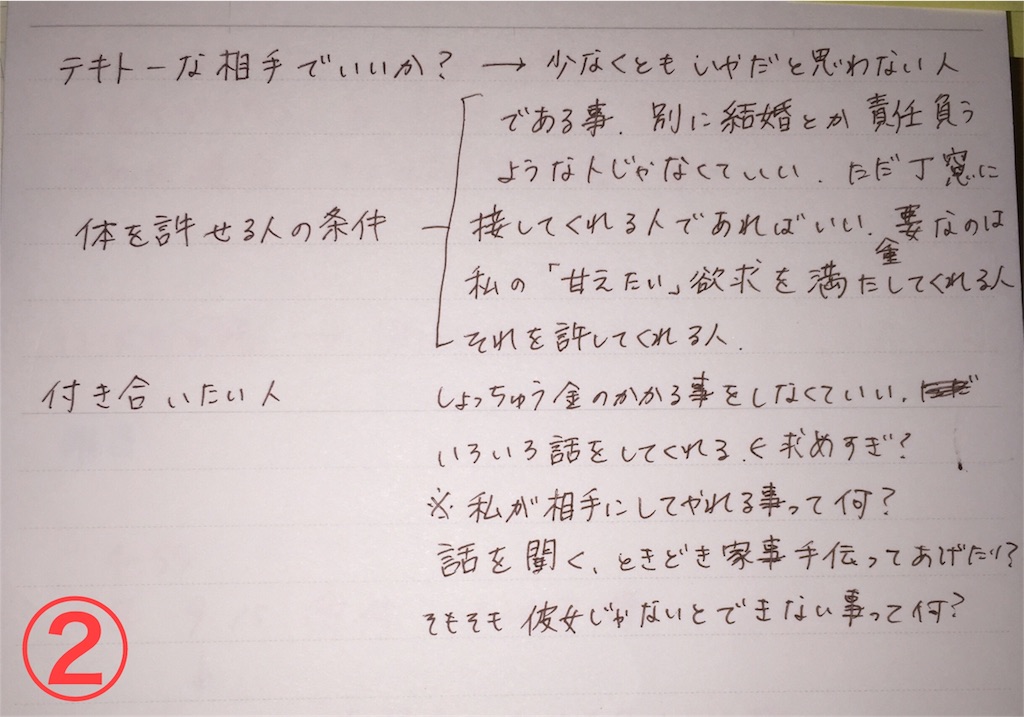 テキトーな相手でいいか? → 少なくともいやだと思わない人
である事. 別に結婚とか責任負う
ような人じゃなくていい. ただ丁寧に
体を許せる人の条件 接してくれる人であればいい. 重要なのは
私の「甘えたい」欲求を満たしてくれる人
それを許してくれる人.
付き合いたい人 しょっちゅう金のかかる事をしなくていい.
いろいろ話をしてくれる.← 求めすぎ?
※ 私が相手にしてやれる事って何?
話を聞く、ときどき家事手伝ってあげたり?
そもそも彼女じゃないとできない事って何?
②